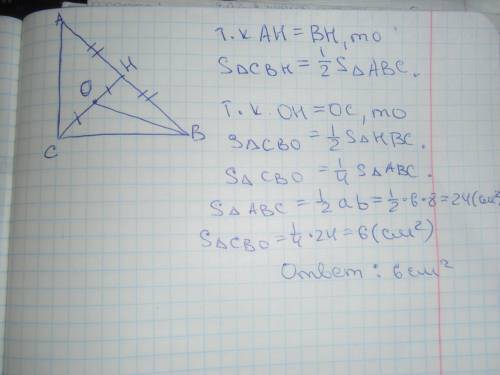 A
H
O
C
B
т.к AH = BH, то
S△CBH = 1/2 S△ABC.
Т.к OH = OC, то
S△CBO = 1/2 S△HBC.
S△CBO = 1/4 S△ABC.
S△ABC = 1/2 ab = 1/2 · 6 · 8 = 24 (см²)
S△CBO = 1/4 · 24 = 6 (см²)
Ответ: 6 см²